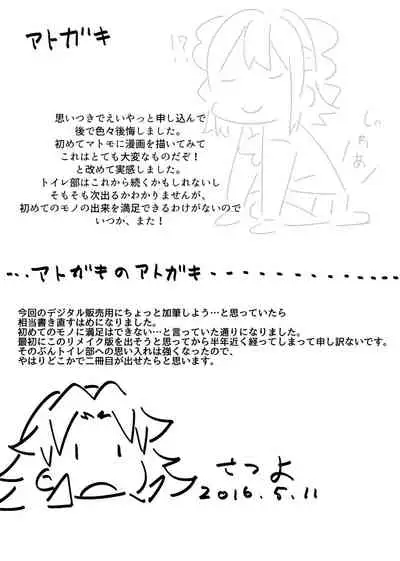 アトガキ
!?
しゅ
ちあ!
思いつきでえいやっと申し込んで
後で色々後悔しました。
初めてマトモに漫画を描いてみて
これはとても大変なものだぞ！
と改めて実感しました。
トイレ部はこれから続くかもしれないし
そもそも次出るかわかりませんが、
初めてのモノの出来を満足できるわけがないので
いつか、また！
・・・アトガキのアトガキ・・・・・・・・・・・・
今回のデジタル販売用にちょっと加筆しよう…と思っていたら
相当書き直すはめになりました。
初めてのモノに満足はできない…と言っていた通りになりました。
最初にこのリメイク版を出そうと思ってから半年近く経ってしまって申し訳ないです。
そのぶんトイレ部への思い入れは強くなったので、
やはりどこかで二冊目が出せたらと思います。
さつよ
2016.5.11